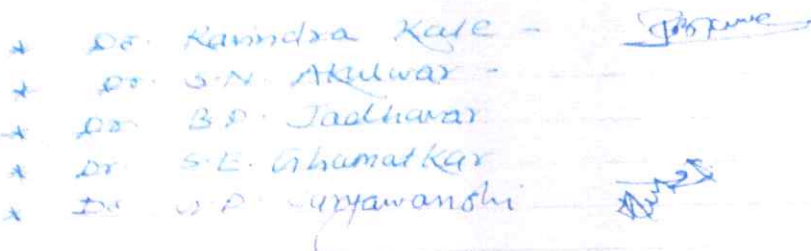 * Dr. Ravindra Kale -
* Dr. S.N. Akulwar -
* Dr. B.D. Jadhavar
* Dr. S.E. Ghumatkar
* Dr. S.D. Suryawanshi